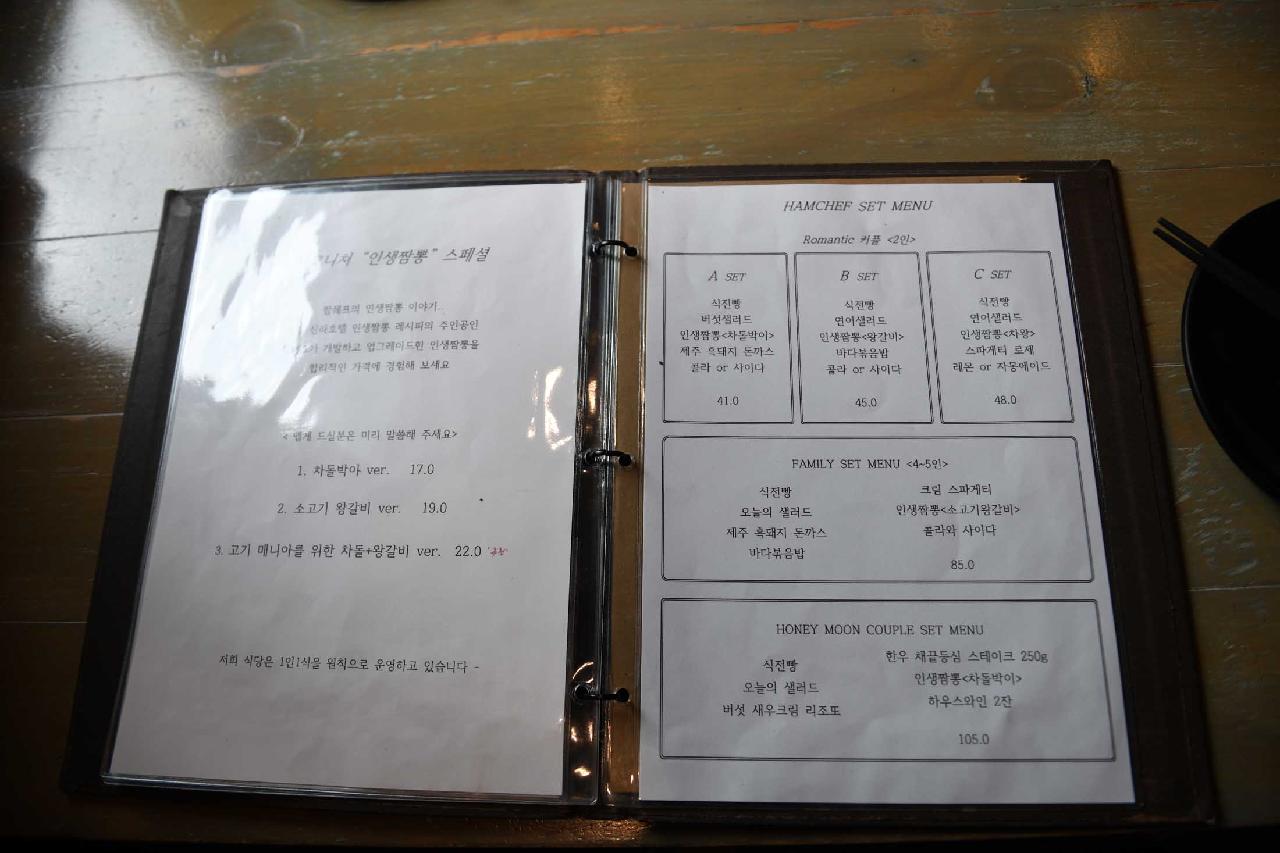 "인생짬뽕" 스페셜
함쉐프의 인생짬뽕 이야기..
인생짬뽕 레시피의 주인공인
개발하고 업그레이드한 인생짬뽕을
합리적인 가격에 경험해 보세요
드실분은 미리 말씀해 주세요>
1. 차돌박아 ver. 17.0
2. 소고기 왕갈비 ver. 19.0
3. 고기 매니아를 위한 차돌+왕갈비 ver. 22.0
저희 식당은 1인1식을 원칙으로 운영하고 있습니다 -
HAMCHEF SET MENU
Romantic 커플 <2인>
A SET
식전빵
버섯샐러드
인생짬뽕<차돌박이>
제주 흑돼지 돈까스
콜라 or 사이다
41.0
B SET
식전빵
연어샐러드
인생짬뽕<왕갈비>
바다볶음밥
콜라 or 사이다
45.0
C SET
식전빵
연어샐러드
인생짬뽕<차왕>
스파게티 로제
레몬 or 자몽에이드
48.0
FAMILY SET MENU <4~5인>
식전빵
오늘의 샐러드
제주 흑돼지 돈까스
바다볶음밥
크림 스파게티
인생짬뽕<소고기왕갈비>
콜라와 사이다
85.0
HONEY MOON COUPLE SET MENU
식전빵
오늘의 샐러드
버섯 새우크림 리조또
한우 채끝등심 스테이크 250g
인생짬뽕<차돌박이>
하우스와인 2잔
105.0